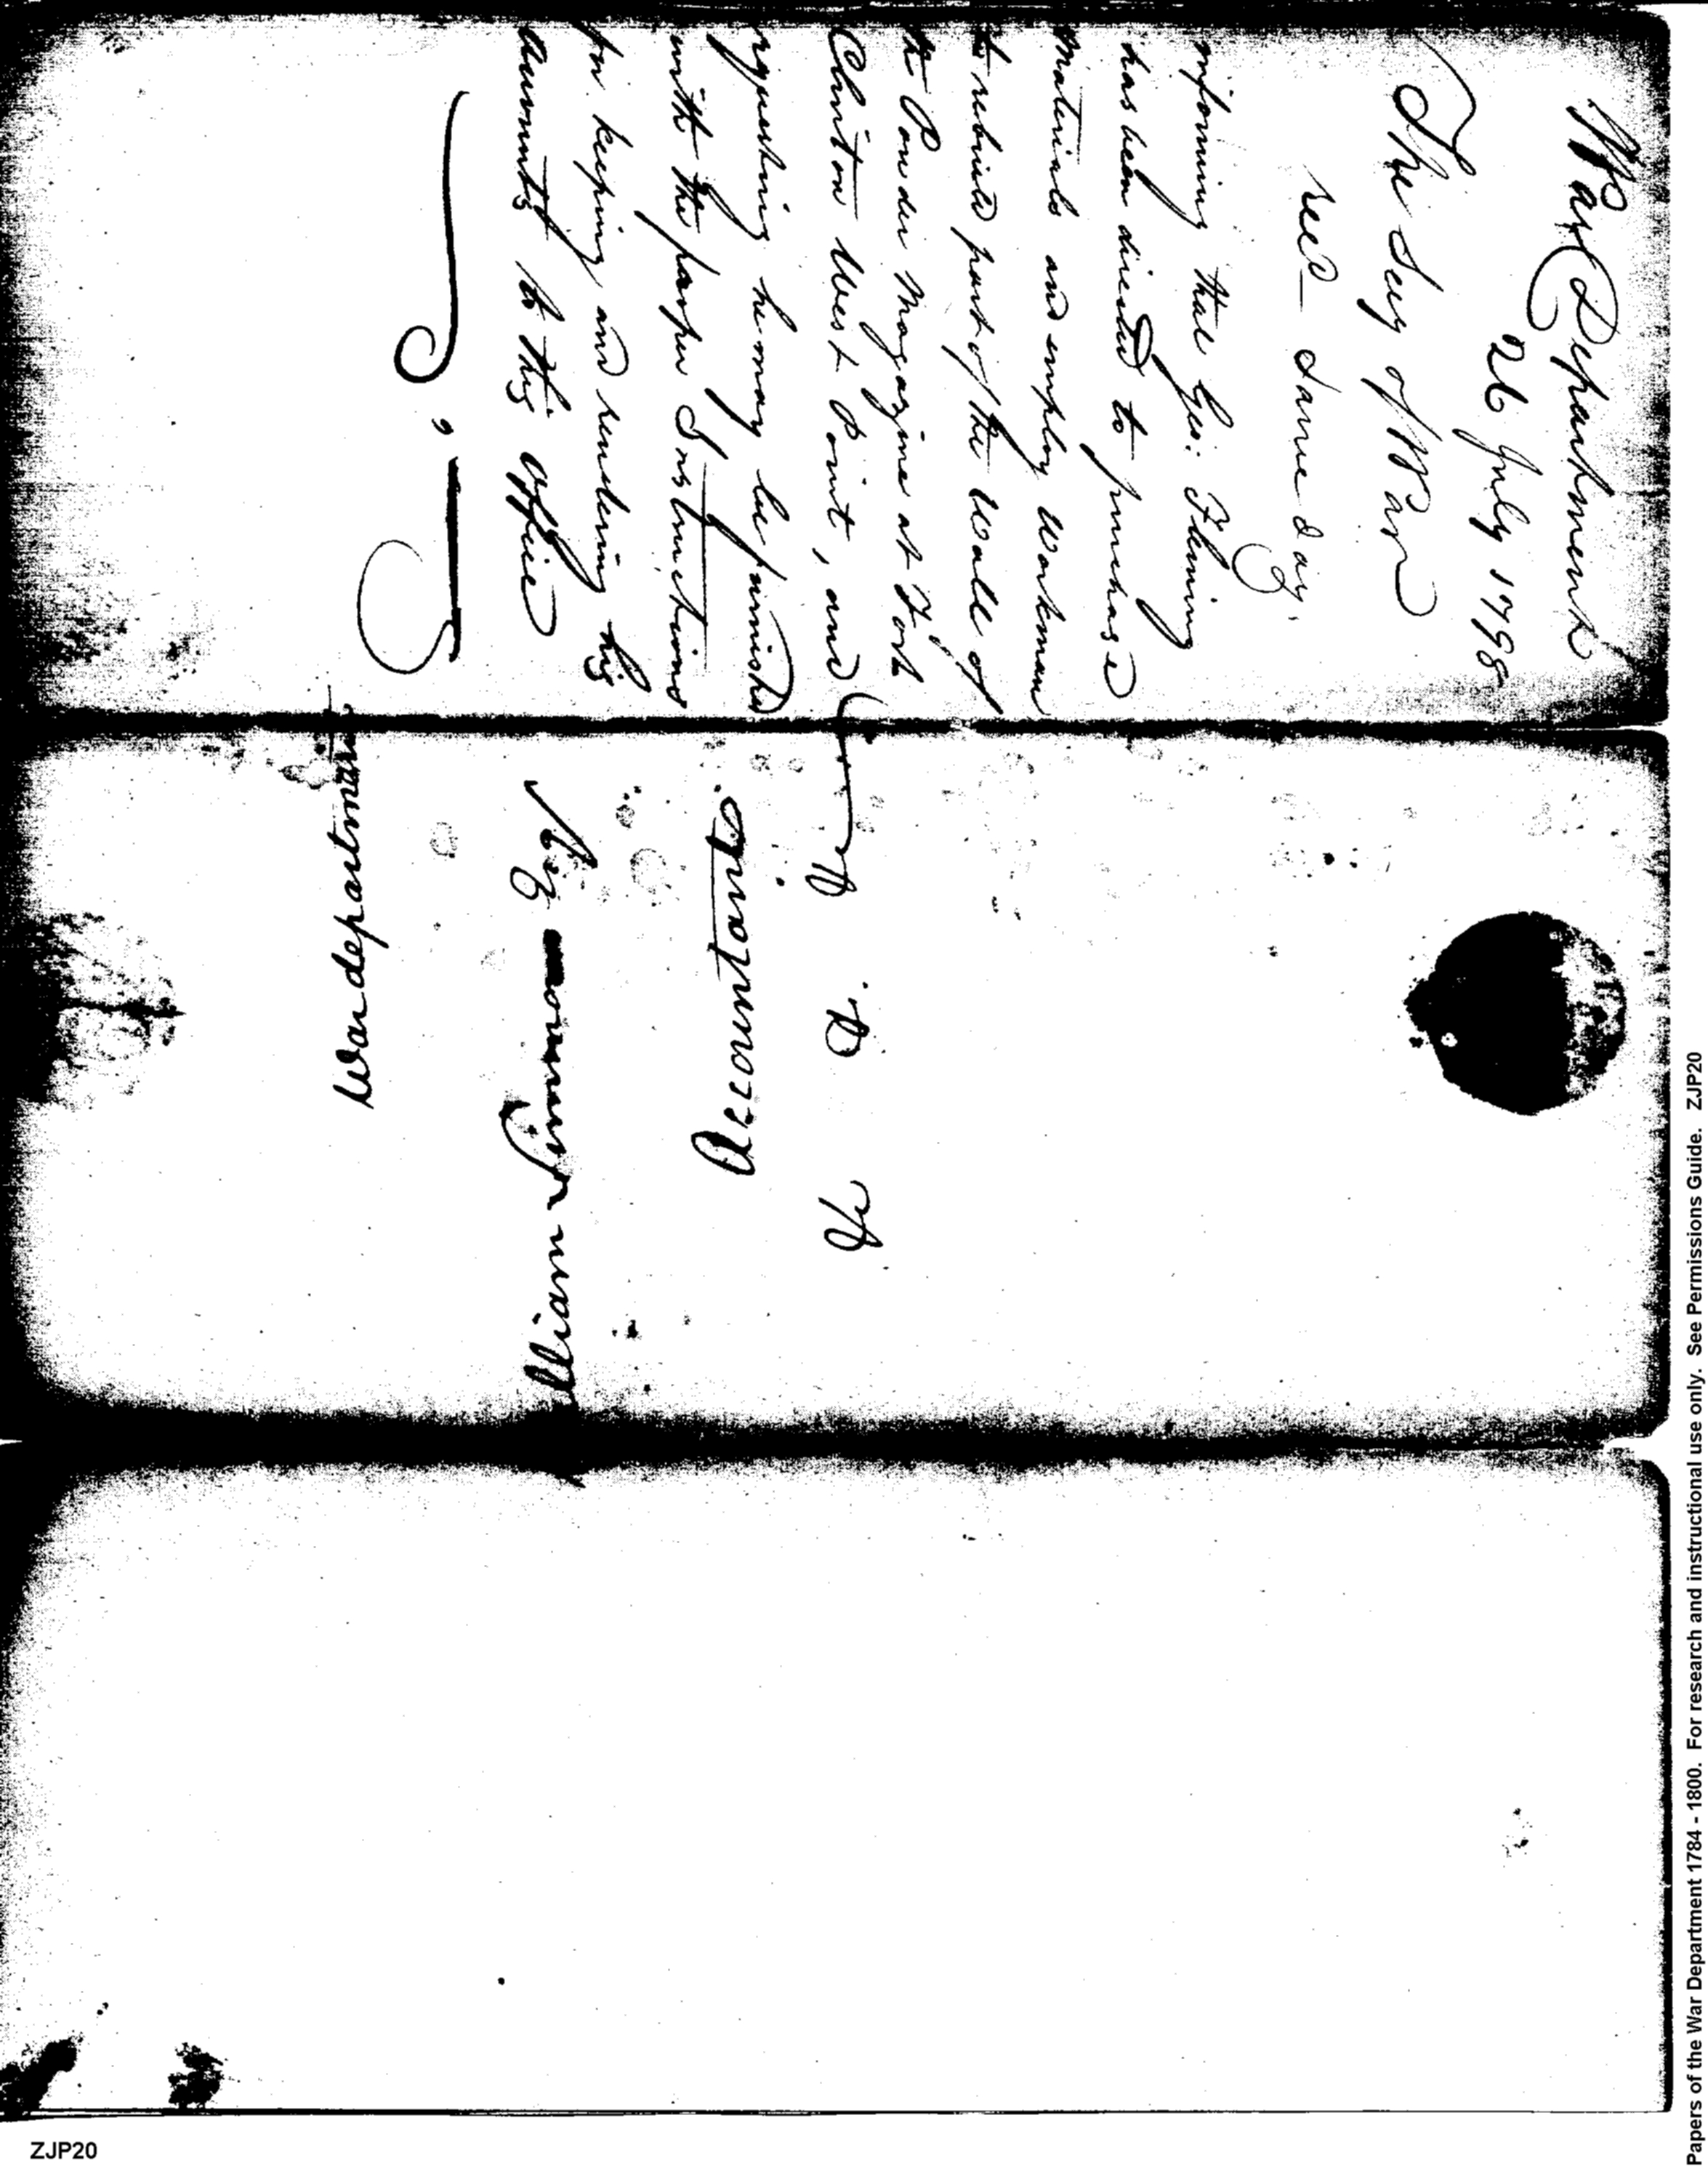 War Department
26 July 1798
The Secy of War
recd same day.
informing that Geo: Fleming
has been directed to purchase
materials and employ Workmen
to rebuild part of the Wall of
the Powder Magazine at Fort
Clinton West Point, and
requesting he may be furnished
with the proper Instructions
for keeping and rendering his
Accounts to this office
War department
William Simmons Esq
Accountant
Papers of the War Department 1784 - 1800. For research and instructional use only. See Permissions Guide. ZJP20
ZJP20